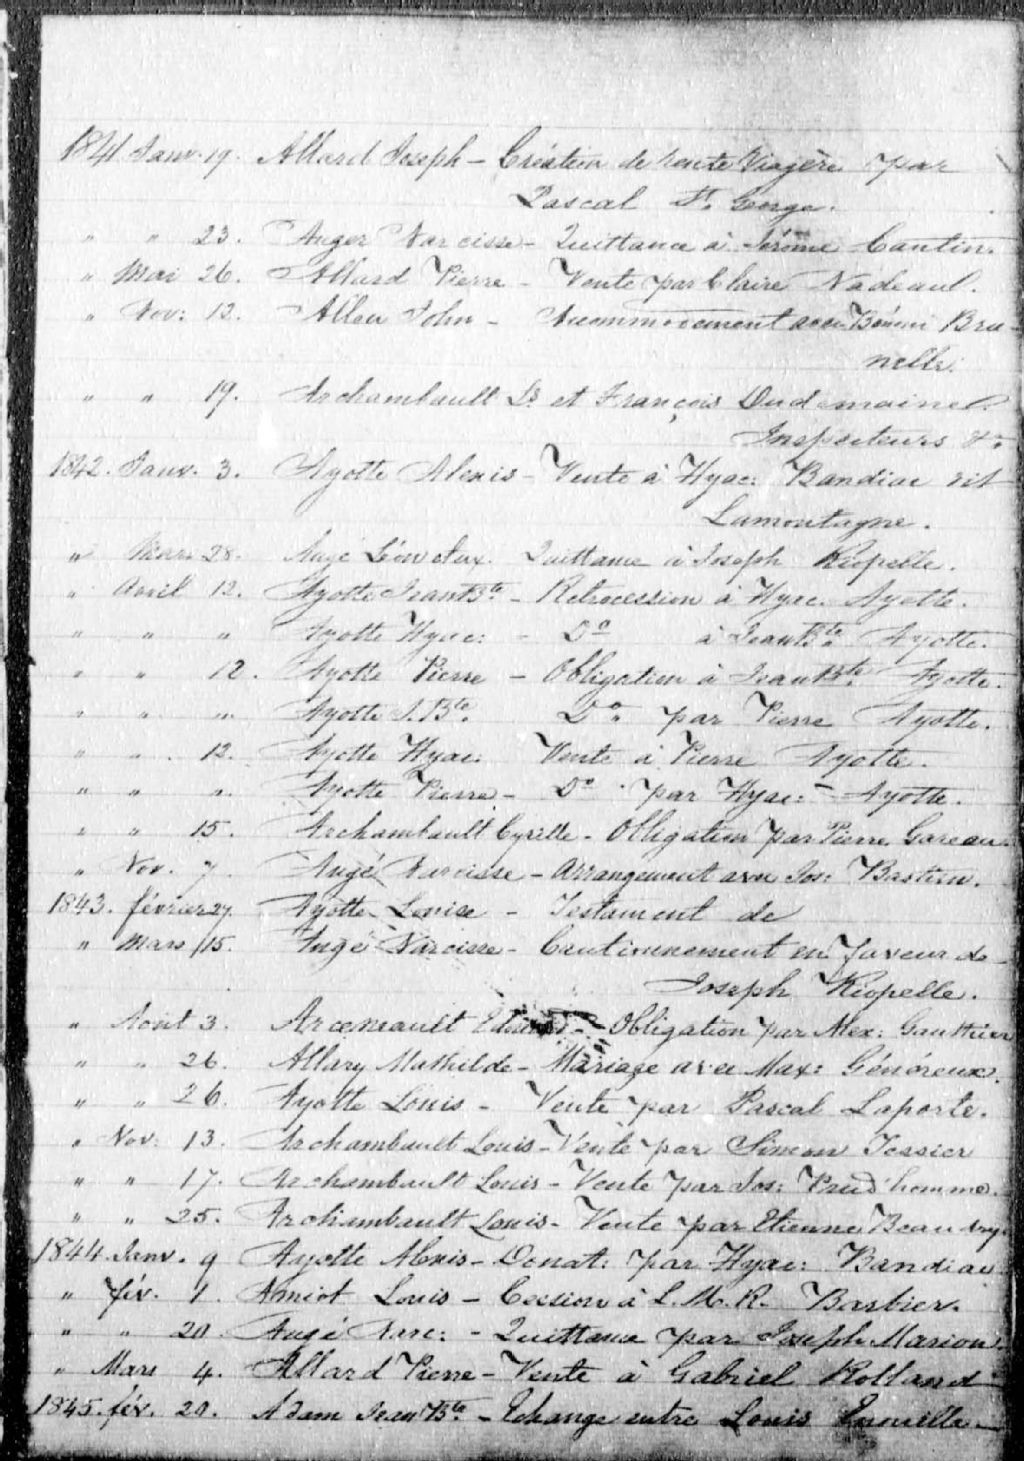 1841 Janv. 19. Allard Joseph - Création de rente Viagère par
Pascal St. George.
" " 23. Auger Narcisse - Quittance à Jérôme Cantin.
" Mai 26. Allard Pierre - Vente par Claire Nadeaul.
" Nov: 12. Allen John - avec Bénoni Bru-
nelle.
" " 19. Archambault Ls. et François Dudemaine
Inspecteurs &c.
1842. Janv. 3. Ayotte Alexis - Vente à Hyac: Bandiac dit
Lamontagne.
" Mars 28. Augé Quittance à Joseph Riopelle.
" Avril 12. Ayotte Jean Bte - Rétrocession à Hyac. Ayotte.
" " " Ayotte Hyac: - Do à Jean Bte. Ayotte.
" " 12. Ayotte Pierre - Obligation à Jean Bte. Ayotte.
" " " Ayotte J. Bte. Do. par Pierre Ayotte.
" " 12. Ayotte Hyac: Vente à Pierre Ayotte.
" " " Ayotte Pierre - Do. par Hyac: - Ayotte.
" " 15. Archambault Cyrille - Obligation par Pierre Gareau.
" Nov. 7. Augé Narcisse - Arrangement avec Jos: Bastien.
1843. février 27. Ayotte Louise - Testament de
" Mars 15. Augé Narcisse - Cautionnement en faveur de
Joseph Riopelle.
" Août 3. Arcenault - Obligation par Alex: Gauthier
" " 26. Allary Mathilde - Mariage avec Max: Généreux.
" " 26. Ayotte Louis - Vente par Pascal Laporte.
" Nov: 13. Archambault Louis - Vente par Simeon Tessier
" " 17. Archambault Louis - Vente par Jos: Prud'homme.
" " 25. Archambault Louis - Vente par Etienne Beaudry
1844. Janv. 9 Ayotte Alexis - Donat: par Hyac: Bandiac
" fév. 1. Amiot Louis - Cession à L. M. R. Barbier.
" " 20. Augé Narc: - Quittance par Joseph Marion.
" Mars 4. Allard Pierre - Vente à Gabriel Rolland
1845. fév. 20. Adam Jean Bte. - Echange entre Louis